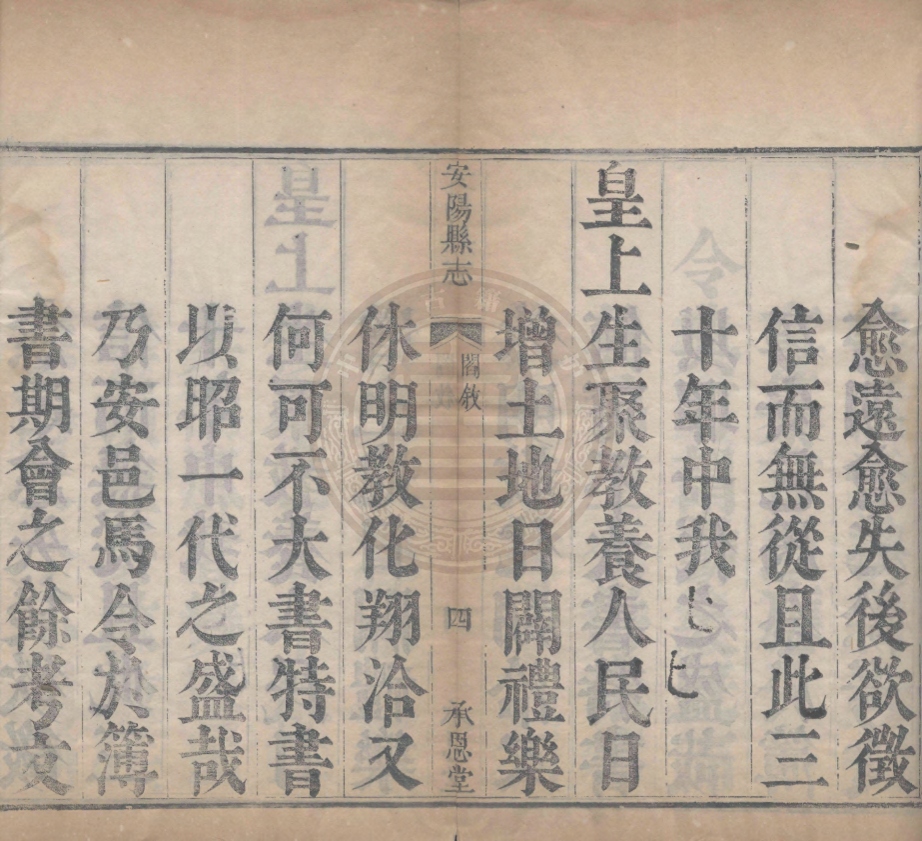 愈遠愈失後欲徵
信而無從且此三
十年中我
皇上生聚教養人民日
增土地日闢禮樂
安陽縣志 閻敘 四 承恩堂
休明教化翔洽又
何可不大書特書
以昭一代之盛哉
乃安邑馬令於簿
書期會之餘考文